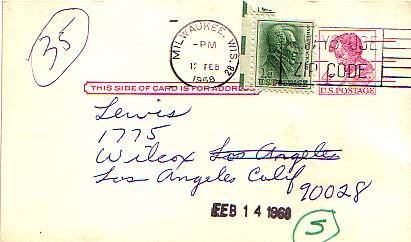 35
MILWAUKEE, WIS.
-PM
12 FEB
1968
28
ZIP CODE
U.S. POSTAGE
U.S. POSTAGE
THIS SIDE OF CARD IS FOR ADDRESS
Lewis
1775
Wilcox Los Angeles
Los Angeles Calif
90028
FEB 14 1968
5